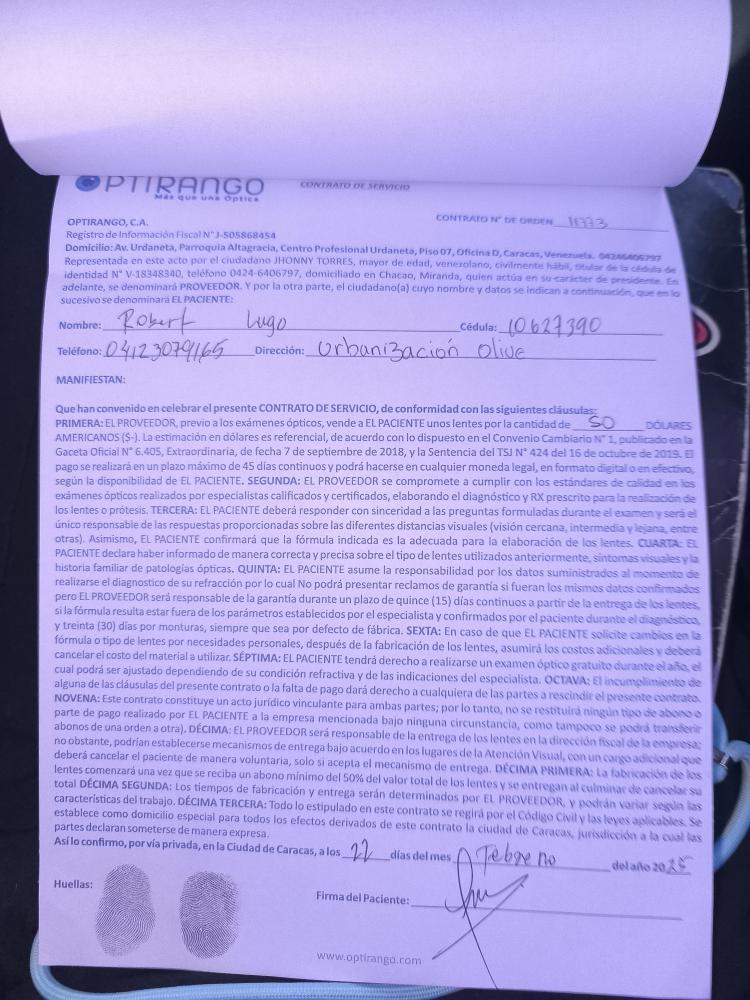 OPTIRANGO
Más que una Óptica
CONTRATO DE SERVICIO
OPTIRANGO, C.A.
CONTRATO N° DE ORDEN
Registro de Información Fiscal N° J-505868454
Domicilio: Av. Urdaneta, Parroquia Altagracia, Centro Profesional Urdaneta, Piso 07, Oficina D, Caracas, Venezuela. 04246406797
Representada en este acto por el ciudadano JHONNY TORRES, mayor de edad, venezolano, civilmente hábil, titular de la cédula de
identidad N° V-18348340, teléfono 0424-6406797, domiciliado en Chacao, Miranda, quien actúa en su carácter de presidente. En
adelante, se denominará PROVEEDOR. Y por la otra parte, el ciudadano(a) cuyo nombre y datos se indican a continuación, que en lo
sucesivo se denominará EL PACIENTE:
Nombre: Robert Lugo Cédula: 10627390
Teléfono: 04123079165 Dirección: Urbanización Olive
MANIFIESTAN:
Que han convenido en celebrar el presente CONTRATO DE SERVICIO, de conformidad con las siguientes cláusulas:
PRIMERA: EL PROVEEDOR, previo a los exámenes ópticos, vende a EL PACIENTE unos lentes por la cantidad de 50 DÓLARES
AMERICANOS ($-). La estimación en dólares es referencial, de acuerdo con lo dispuesto en el Convenio Cambiario N° 1, publicado en la
Gaceta Oficial N° 6.405, Extraordinaria, de fecha 7 de septiembre de 2018, y la Sentencia del TSJ N° 424 del 16 de octubre de 2019. El
pago se realizará en un plazo máximo de 45 días continuos y podrá hacerse en cualquier moneda legal, en formato digital o en efectivo,
según la disponibilidad de EL PACIENTE. SEGUNDA: EL PROVEEDOR se compromete a cumplir con los estándares de calidad en los
exámenes ópticos realizados por especialistas calificados y certificados, elaborando el diagnóstico y RX prescrito para la realización de
los lentes o prótesis. TERCERA: EL PACIENTE deberá responder con sinceridad a las preguntas formuladas durante el examen y será el
único responsable de las respuestas proporcionadas sobre las diferentes distancias visuales (visión cercana, intermedia y lejana, entre
otras). Asimismo, EL PACIENTE confirmará que la fórmula indicada es la adecuada para la elaboración de los lentes. CUARTA: EL
PACIENTE declara haber informado de manera correcta y precisa sobre el tipo de lentes utilizados anteriormente, síntomas visuales y la
historia familiar de patologías ópticas. QUINTA: EL PACIENTE asume la responsabilidad por los datos suministrados al momento de
realizarse el diagnostico de su refracción por lo cual No podrá presentar reclamos de garantía si fueran los mismos datos confirmados
pero EL PROVEEDOR será responsable de la garantía durante un plazo de quince (15) días continuos a partir de la entrega de los lentes,
si la fórmula resulta estar fuera de los parámetros establecidos por el especialista y confirmados por el paciente durante el diagnóstico,
y treinta (30) días por monturas, siempre que sea por defecto de fábrica. SEXTA: En caso de que EL PACIENTE solicite cambios en la
fórmula o tipo de lentes por necesidades personales, después de la fabricación de los lentes, asumirá los costos adicionales y deberá
cancelar el costo del material a utilizar. SÉPTIMA: EL PACIENTE tendrá derecho a realizarse un examen óptico gratuito durante el año, el
cual podrá ser ajustado dependiendo de su condición refractiva y de las indicaciones del especialista. OCTAVA: El incumplimiento de
alguna de las cláusulas del presente contrato o la falta de pago dará derecho a cualquiera de las partes a rescindir el presente contrato.
NOVENA: Este contrato constituye un acto jurídico vinculante para ambas partes; por lo tanto, no se restituirá ningún tipo de abono o
parte de pago realizado por EL PACIENTE a la empresa mencionada bajo ninguna circunstancia, como tampoco se podrá transferir
abonos de una orden a otra). DÉCIMA: EL PROVEEDOR será responsable de la entrega de los lentes en la dirección fiscal de la empresa;
no obstante, podrían establecerse mecanismos de entrega bajo acuerdo en los lugares de la Atención Visual, con un cargo adicional que
deberá cancelar el paciente de manera voluntaria, solo si acepta el mecanismo de entrega. DÉCIMA PRIMERA: La fabricación de los
lentes comenzará una vez que se reciba un abono mínimo del 50% del valor total de los lentes y se entregan al culminar de cancelar su
total DÉCIMA SEGUNDA: Los tiempos de fabricación y entrega serán determinados por EL PROVEEDOR, y podrán variar según las
características del trabajo. DÉCIMA TERCERA: Todo lo estipulado en este contrato se regirá por el Código Civil y las leyes aplicables. Se
establece como domicilio especial para todos los efectos derivados de este contrato la ciudad de Caracas, jurisdicción a la cual las
partes declaran someterse de manera expresa.
Así lo confirmo, por vía privada, en la Ciudad de Caracas, a los 22 días del mes Febreno del año 2025
Huellas:
Firma del Paciente:
www.optirango.com